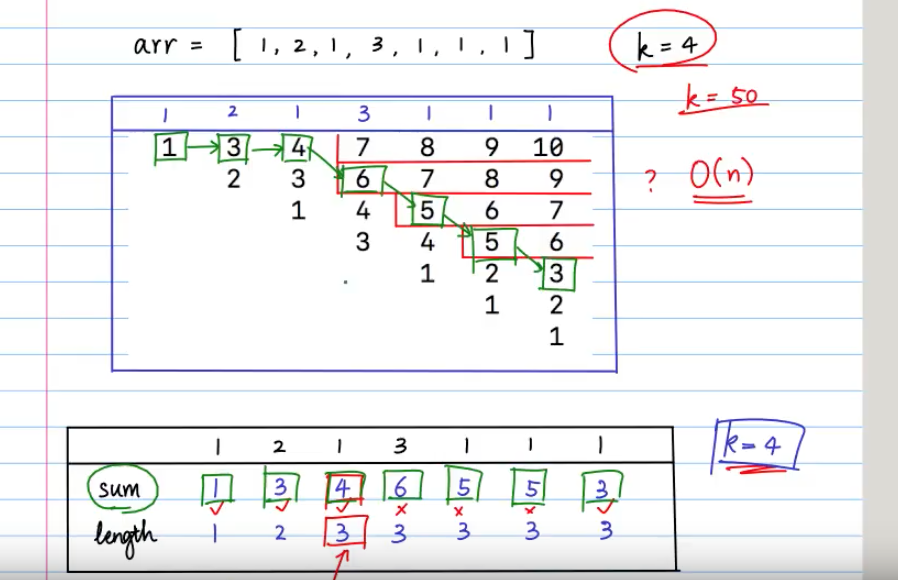 arr = [ 1, 2, 1, 3, 1, 1, 1 ] k = 4
k = 50
1 2 1 3 1 1 1
1 3 4 7 8 9 10
2 3 6 7 8 9
? O(n)
1 4 5 6 7
3 4 5 6
1 2 3
1 2
1
1 2 1 3 1 1 1
k = 4
sum 1 3 4 6 5 5 3
length 1 2 3 3 3 3 3